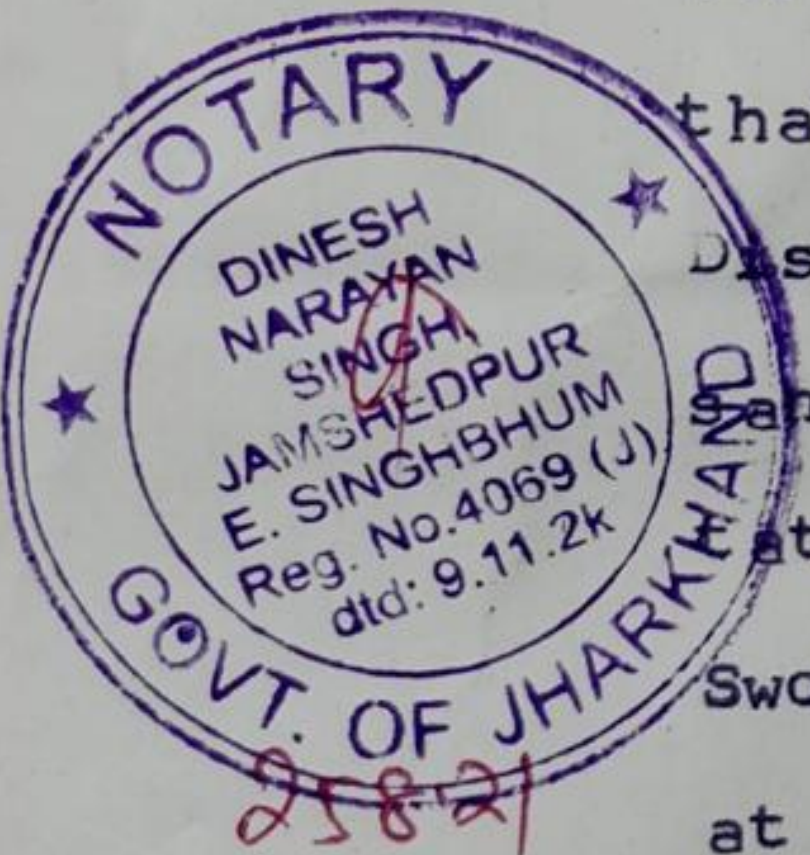 NOTARY
DINESH
NARAYAN
SINGH
JAMSHEDPUR
E. SINGHBHUM
Reg. No.4069 (J)
dtd: 9.11.2k
GOVT. OF JHARKHAND
25 8 21
tha
Dis
at
Swo
at